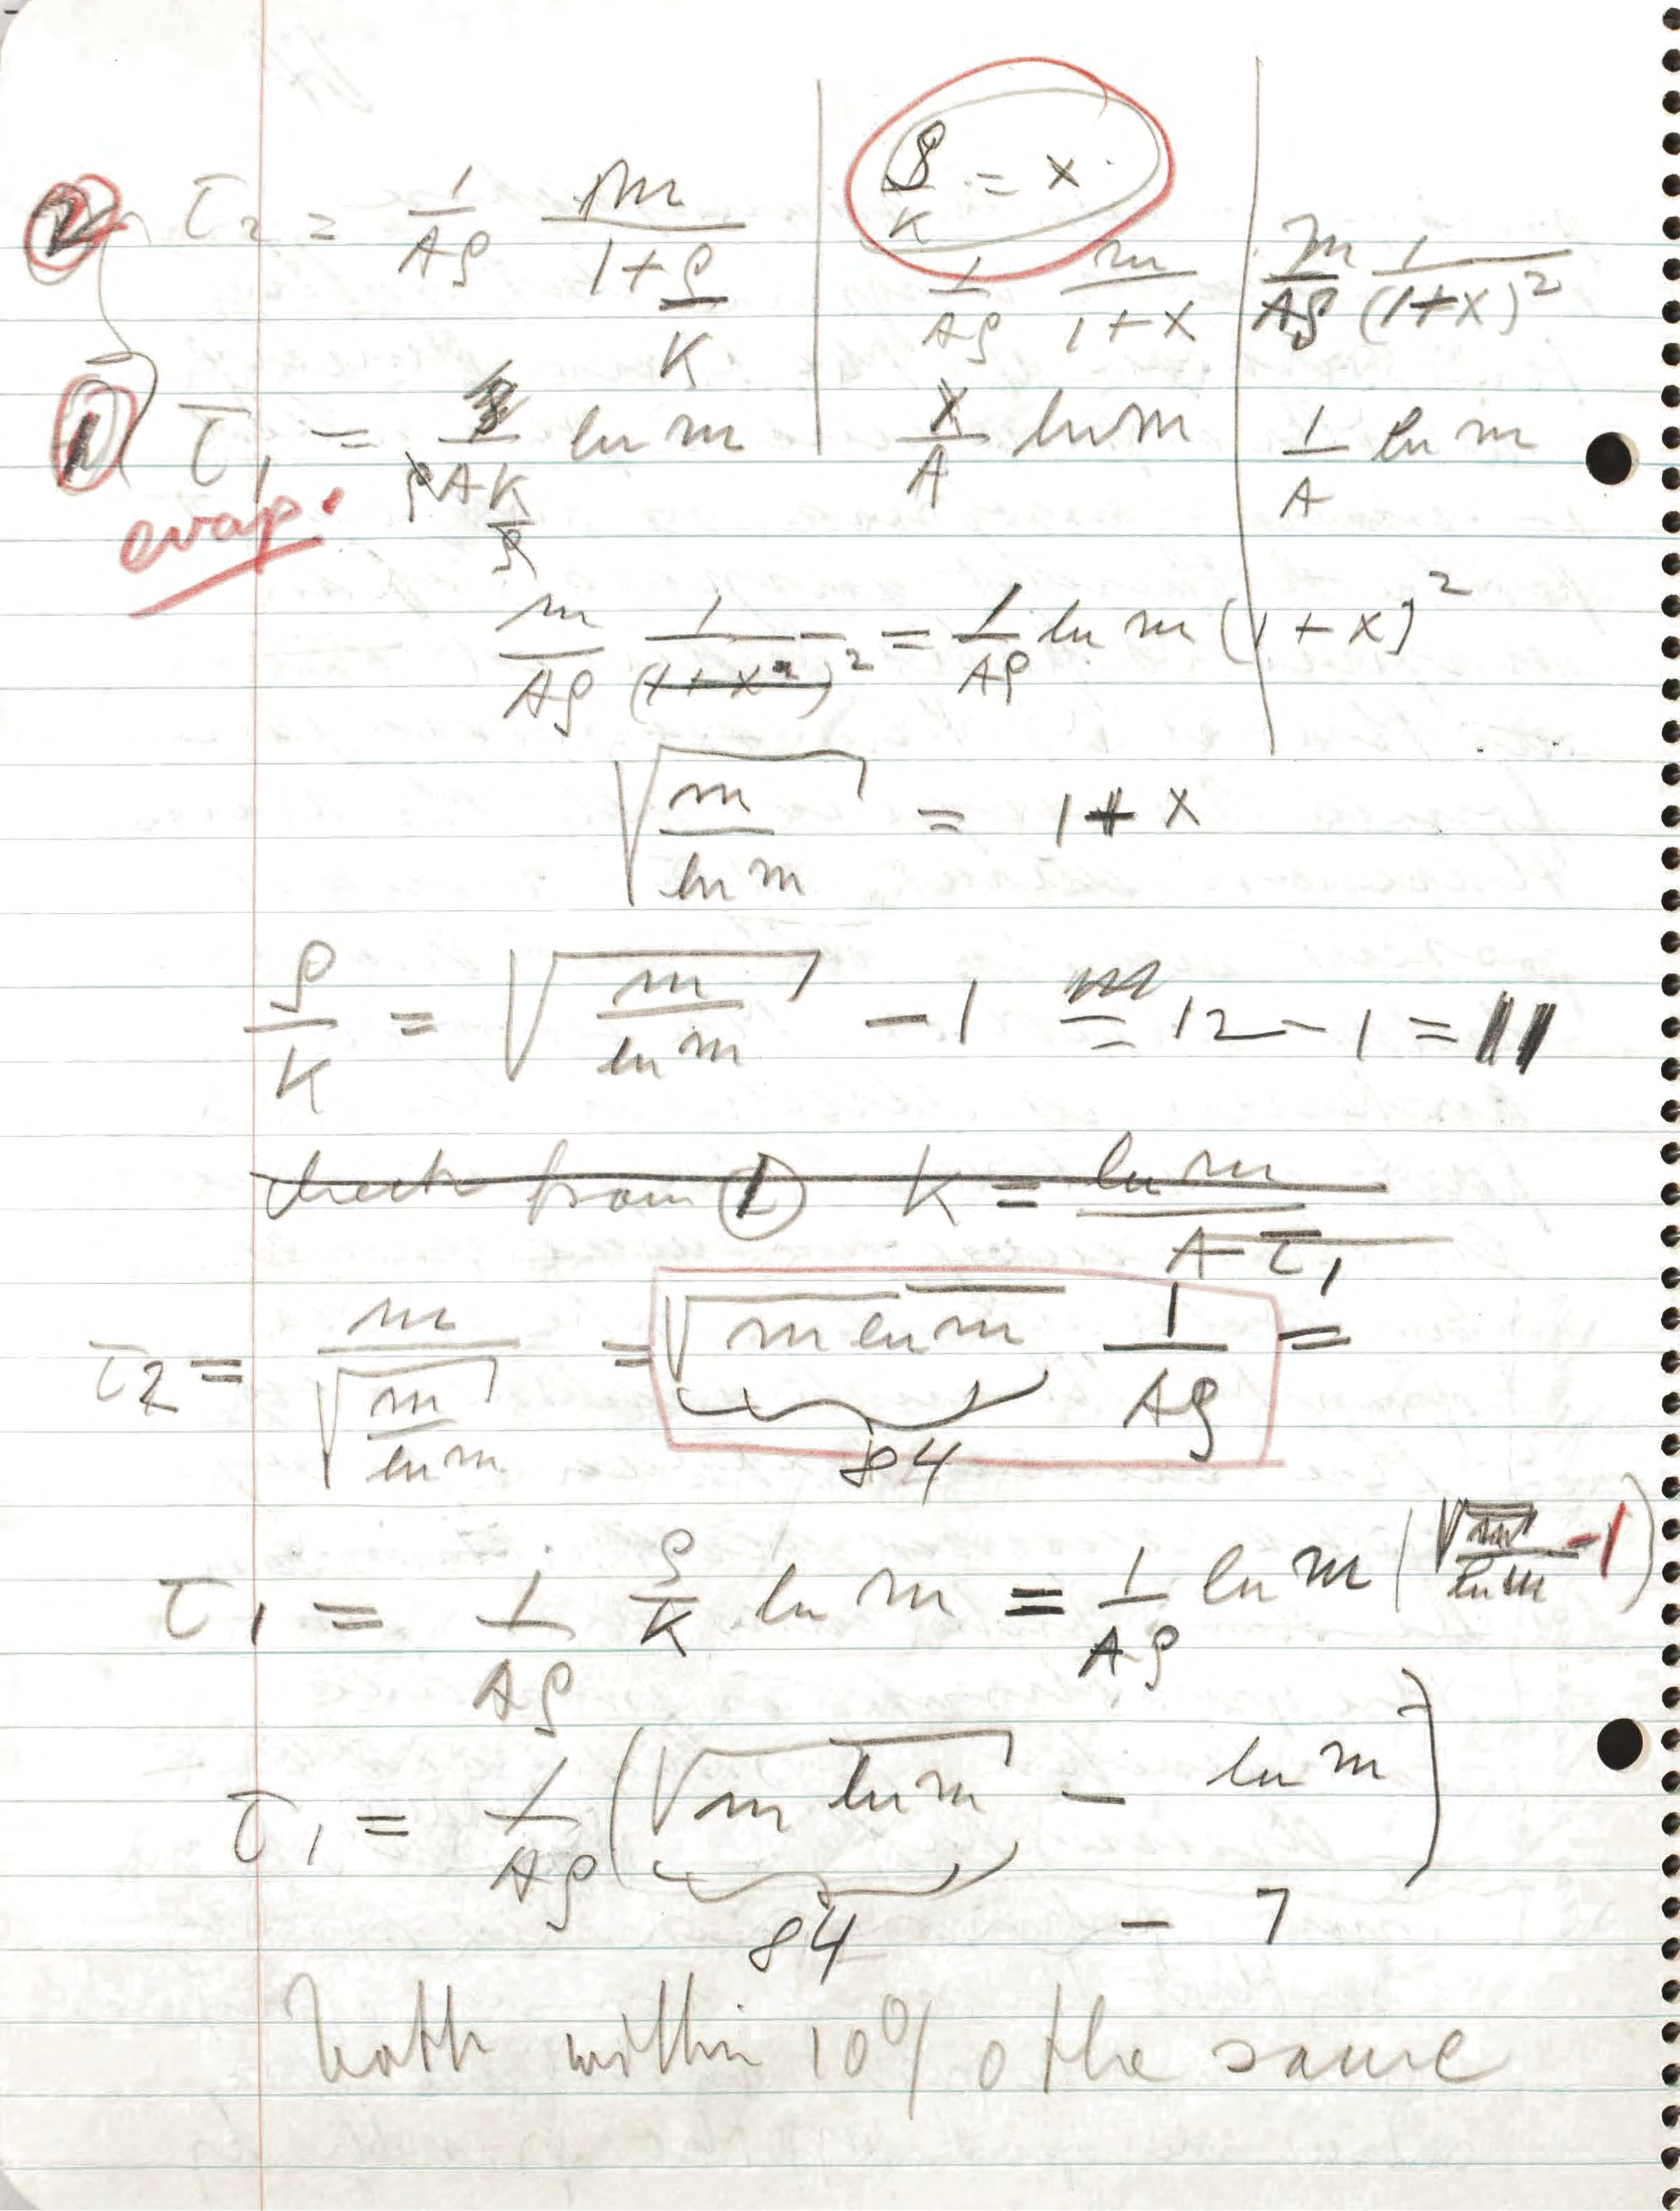 ② τ₂ = 1/Aρ m/(1+ρ/K) | ρ/K = x
1/Aρ m/(1+x) | m/Aρ 1/(1+x)²
① τ₁ = 1/(ρAK/ρ) ln m | x/A ln m | 1/A ln m
evap.
m/Aρ 1/(1+x²)² = 1/Aρ ln m (1+x)²
√(m/ln m) = 1+x
ρ/K = √(m/ln m) − 1 = 12 − 1 = 11
check from ① K = ln m/Aτ₁
τ₂ = m/√(m/ln m) = √(m ln m) 1/Aρ =
84
τ₁ = 1/Aρ ρ/K ln m = 1/Aρ ln m (√m/ln m − 1)
τ₁ = 1/Aρ (√(m ln m) − ln m)
84 − 7
both within 10% the same